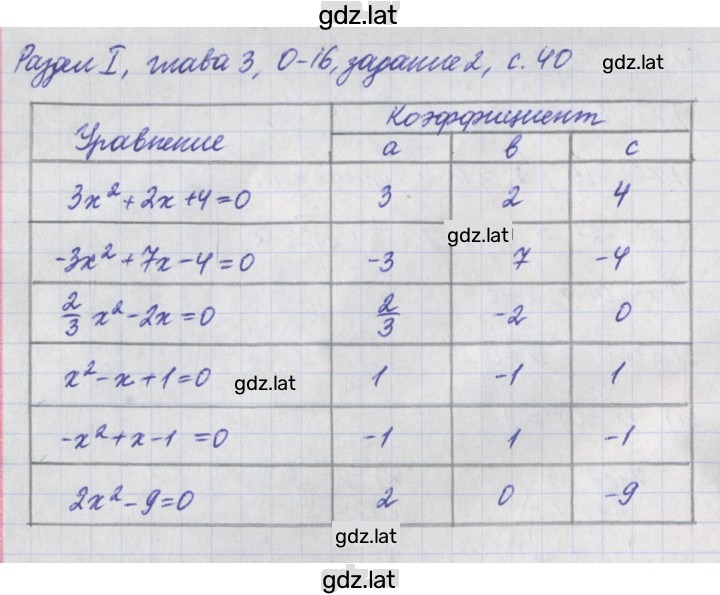 gdz.lat
Раздел I, глава 3, О-16, задание 2, с. 40 gdz.lat
Уравнение Коэффициент
а в с
3x²+2x+4=0 3 2 4
gdz.lat
-3x²+7x-4=0 -3 7 -4
2/3 x²-2x=0 2/3 -2 0
x²-x+1=0 gdz.lat 1 -1 1
-x²+x-1 =0 -1 1 -1
2x²-9=0 2 0 -9
gdz.lat
gdz.lat